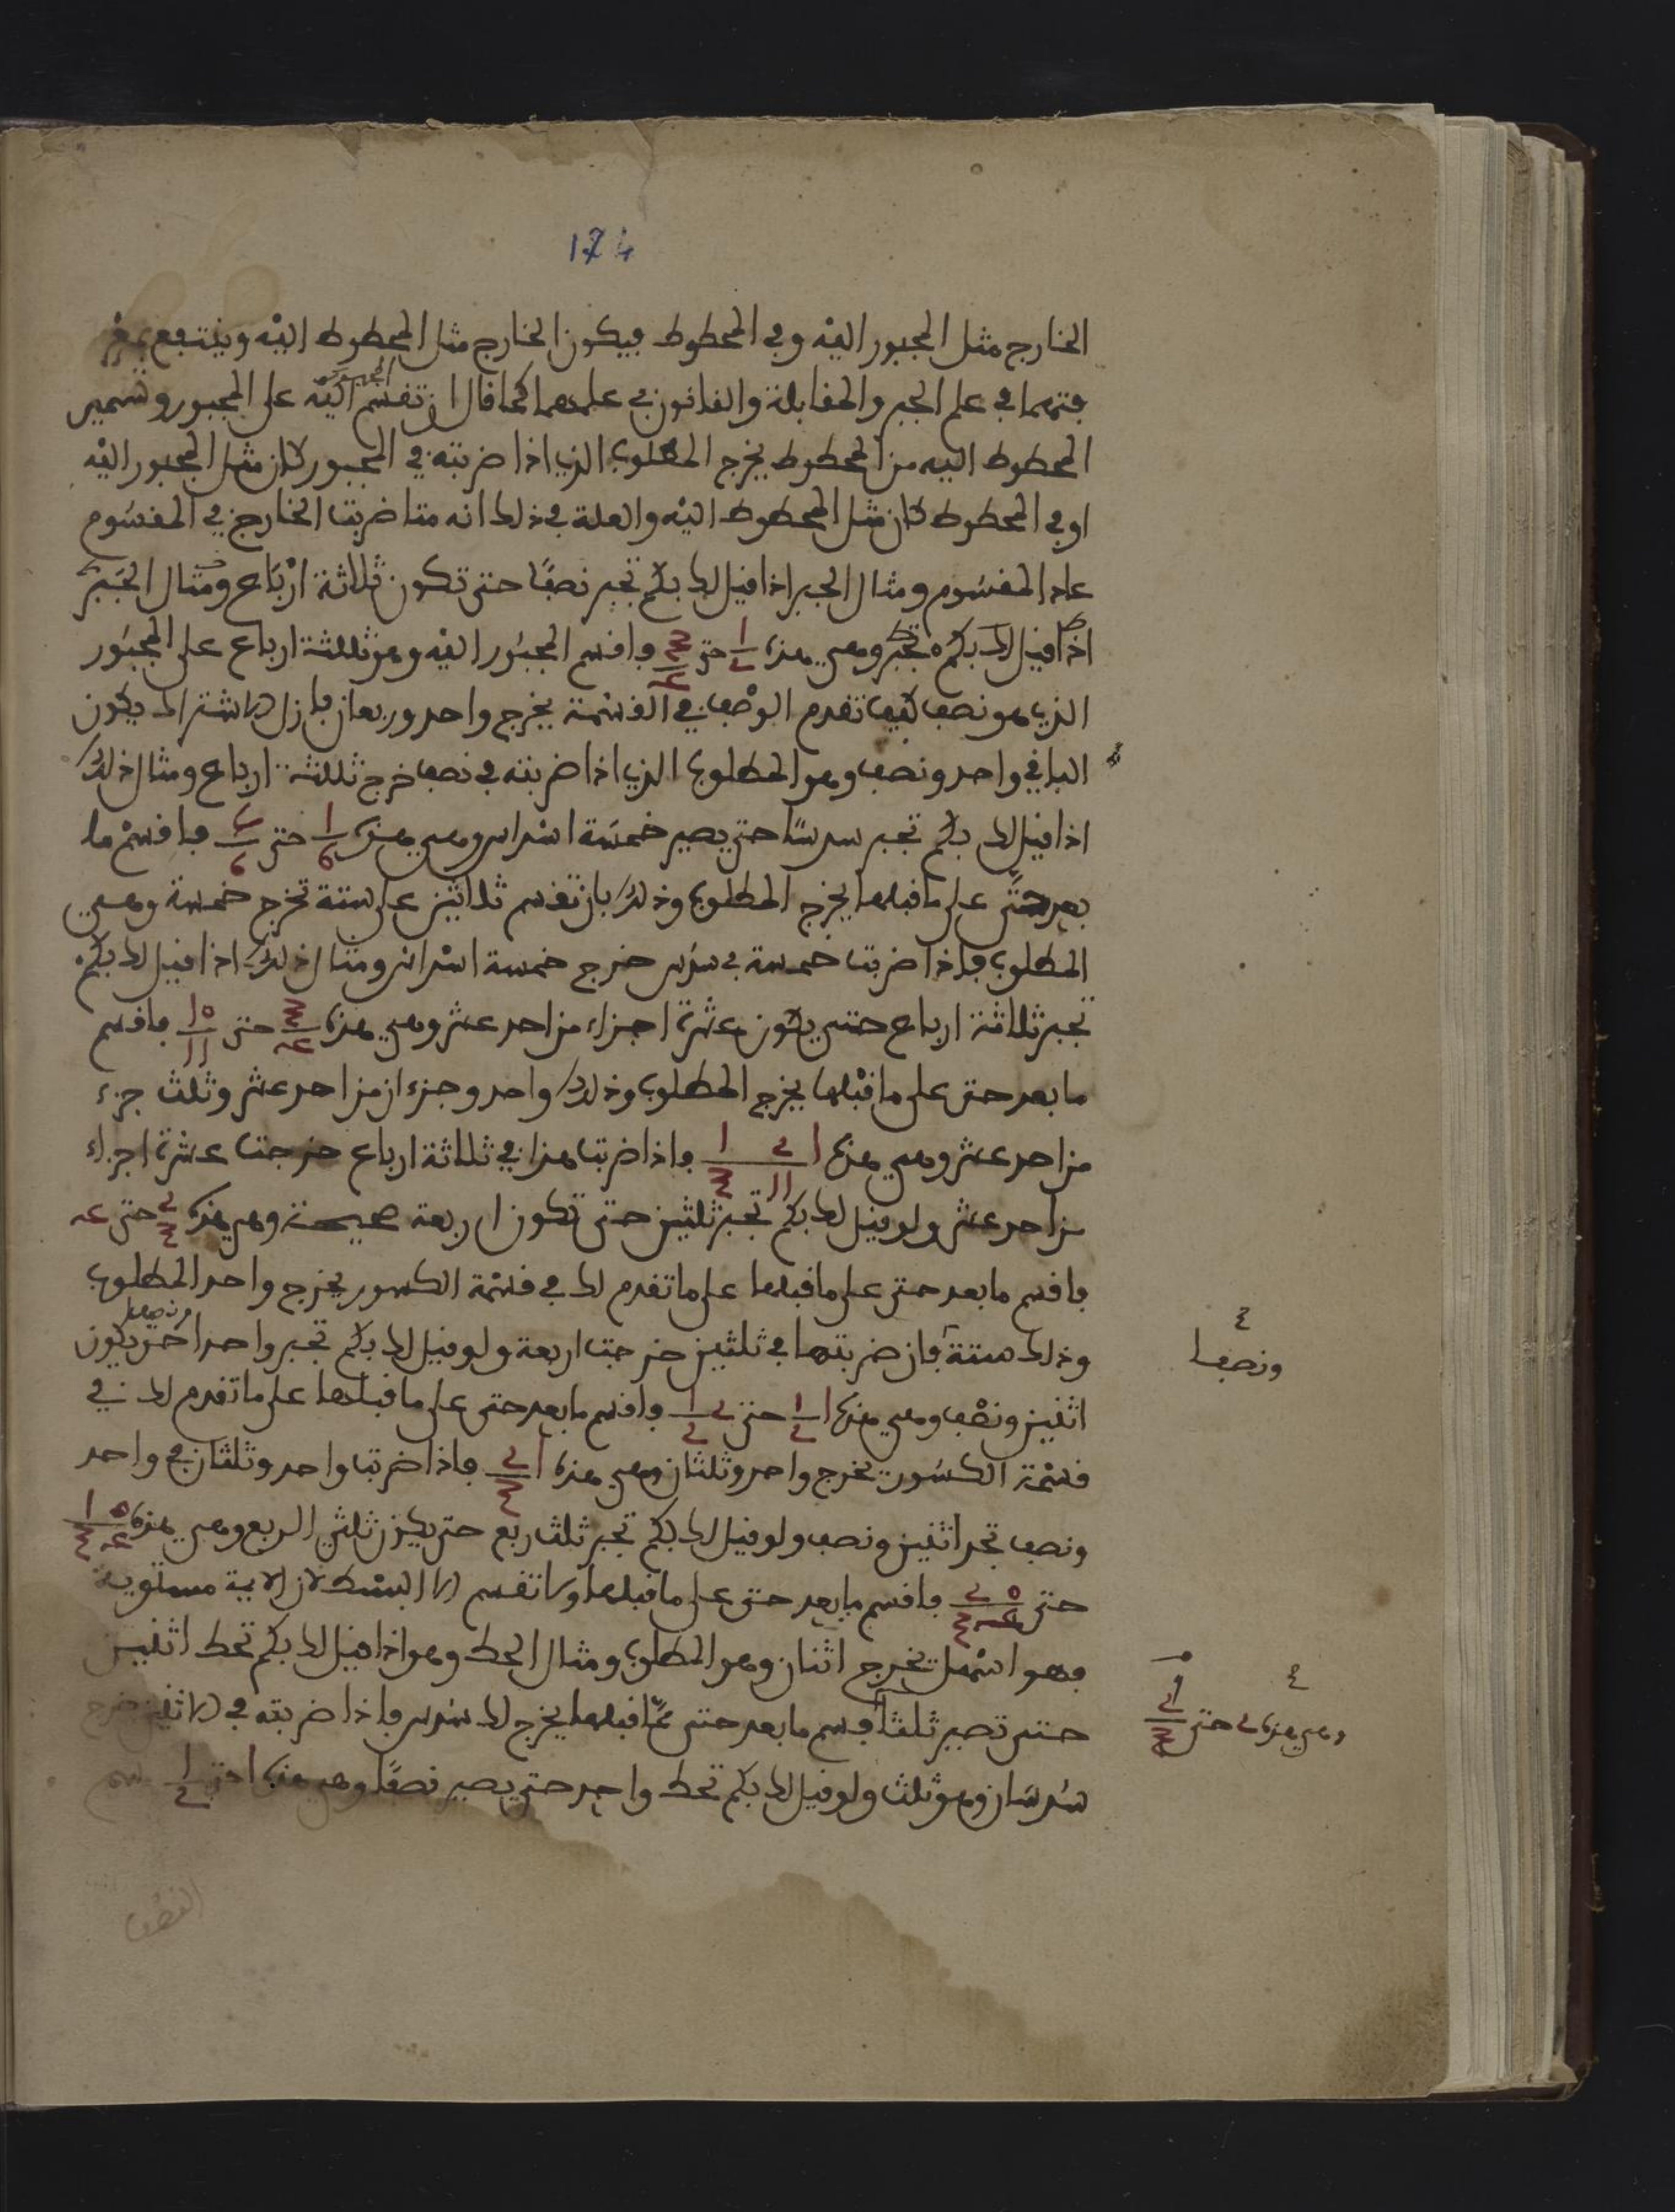 174
الخارج مثل المجبور اليه وفي المحطوط فيكون الخارج مثل المحطوط اليه وينتفع
في علم الجبر والمقابلة والقانون في علمهما كما قال ان تقسم المجبور اليه على المجبور وتسمي
المحطوط اليه من المحطوط يخرج المطلوب الذي اذا ضربته في المجبور كان مثل المجبور اليه
او في المحطوط كان مثل المحطوط اليه والعلة في ذلك انه متا ضربت الخارج في المقسوم
عاد المقسوم ومثال الجبر اذا قيل لك بكم تجبر نصفا حتى تكون ثلاثة ارباع ومثال الجبر
اذا قيل لك بكم تجبر وهي هذه ١/٢ حتى ٣/٤ فاقسم المجبور اليه وهو ثلثة ارباع على المجبور
الذي هو نصف كيف تقدم الوصف في القسمة يخرج واحد وربعان فازل الاشتراك يكون
الباقي واحد ونصف وهو المطلوب الذي اذا ضربته في نصف خرج ثلثة ارباع ومثال ذلك
اذا قيل لك بكم تجبر سدسا حتى يصير خمسة اسداس وهي هذه ١/٦ حتى ٥/٦ فاقسم ما
بعد حتى على ما قبلها يخرج المطلوب وذلك بان تقسم ثلاثين على ستة تخرج خمسة وهي
المطلوب فاذا ضربت خمسة في سدس خرج خمسة اسداس ومثال ذلك اذا قيل لك بكم
تجبر ثلاثة ارباع حتى يكون عشرة اجزاء من احد عشر وهي هذه ٣/٤ حتى ١٠/١١ فاقسم
ما بعد حتى على ما قبلها يخرج المطلوب وذلك واحد وجزءان من احد عشر وثلث جزء
من احد عشر وهي هذه ١ ٢ ١/١١ ٣ فاذا ضربت هذا في ثلاثة ارباع خرجت عشرة اجزاء
من احد عشر ولو قيل لك بكم تجبر ثلثين حتى تكون اربعة صحيحة وهي هذه ٢/٣ حتى ٤
فاقسم ما بعد حتى على ما قبلها على ما تقدم لك في قسمة الكسور يخرج واحد المطلوب
وذلك ستة فان ضربتها في ثلثين خرجت اربعة ولو قيل لك بكم تجبر واحدا ونصفا حتى يكون
ونصفا
اثنين ونصف وهي هذه ١ ١/٢ حتى ٢ ١/٢ فاقسم ما بعد حتى على ما قبلها على ما تقدم لك في
قسمة الكسور يخرج واحد وثلثان وهي هذه ١ ٢/٣ فاذا ضربت واحد وثلثان في واحد
ونصف تجد اثنين ونصف ولو قيل لك بكم تجبر ثلث ربع حتى يكون ثلثي الربع وهي هذه ١ ٥/٣ ٤
حتى ٢ ٥/٣ ٤ فاقسم ما بعد حتى على ما قبلها ولا تقسم الا البسط لان الايمة مستوية
فهو اسهل يخرج اثنان وهو المطلوب ومثال الحط وهو اذا قيل لك بكم تحط اثنين
حتى تصير ثلثا فسم ما بعد حتى عما قبلها يخرج لك سدس فاذا ضربته في الاثنين خرج
وهي هذه ٢ حتى ١/٣
سدسان وهو ثلث ولو قيل لك بكم تحط واحد حتى يصير نصفا وهي هذه ١ حتى ١/٢ سم
النصف